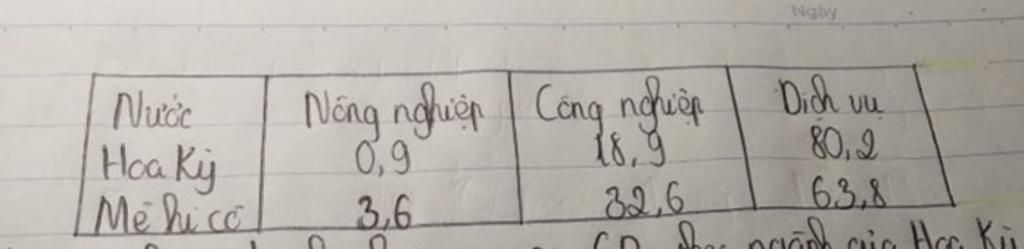 Ngày
Nước Nông nghiệp Công nghiệp Dịch vụ
Hoa Kỳ 0,9 18,9 80,2
Mê hi cô 3,6 32,6 63,8
ngành của Hoa Kì